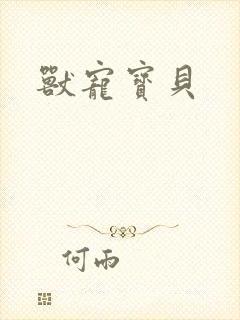 獸寵寶貝
何雨